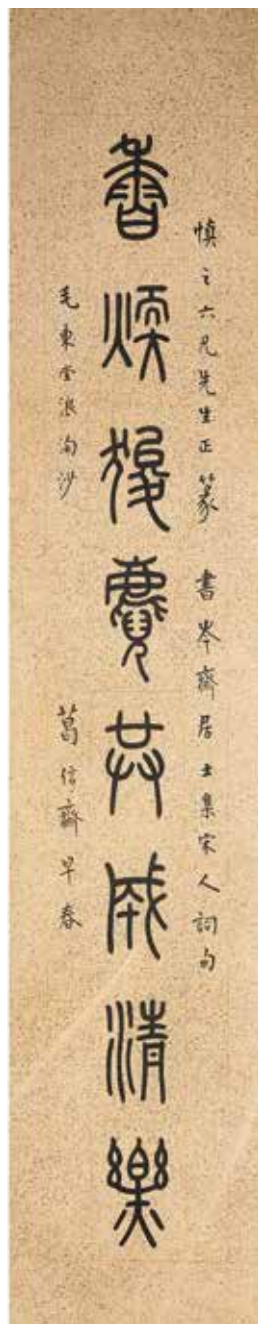 慎之六兄先生正篆 書岑齋居士集宋人詞句
香煗狻麑共成清樂
毛東堂浪淘沙 葛信齋早春